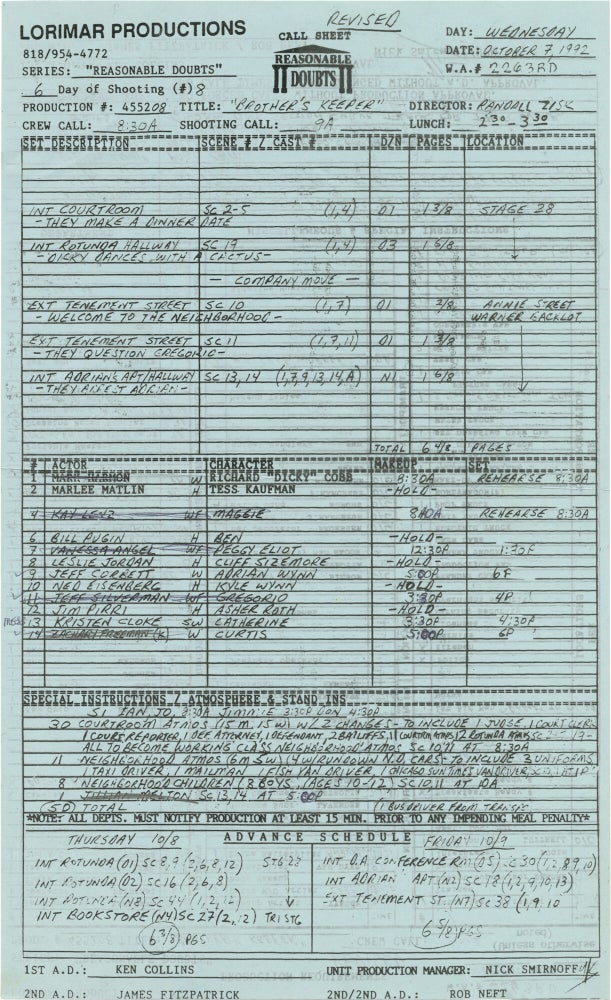 REVISED
LORIMAR PRODUCTIONS
CALL SHEET
DAY: WEDNESDAY
818/954-4772
REASONABLE DOUBTS
DATE: OCTOBER 7, 1992
SERIES: "REASONABLE DOUBTS"
W.A.# 2263RD
6 Day of Shooting (#) 8
PRODUCTION #: 455208 TITLE: "BROTHER'S KEEPER" DIRECTOR: RANDALL ZISK
CREW CALL: 8:30A SHOOTING CALL: 9A LUNCH: 2:30-3:30
SET DESCRIPTION SCENE # / CAST # D/N PAGES LOCATION
INT COURTROOM SC 2-5 (1,4) D1 1 3/8 STAGE 28
- THEY MAKE A DINNER DATE
INT ROTUNDA HALLWAY SC 19 (1,4) D3 1 5/8
- DICKY DANCES WITH A CACTUS -
- COMPANY MOVE -
EXT TENEMENT STREET SC 10 (1,7) D1 2/8 ANNIE STREET
- WELCOME TO THE NEIGHBORHOOD - WARNER BACKLOT
EXT TENEMENT STREET SC 11 (1,7,11) D1 1 3/8
- THEY QUESTION GREGORIO -
INT ADRIAN'S APT/HALLWAY SC 13, 14 (1,7,9,13,14,A) N1 1 6/8
- THEY ARREST ADRIAN -
TOTAL 6 4/8 PAGES
# ACTOR CHARACTER MAKEUP SET
1 MARK HARMON W RICHARD "DICKY" COBB 8:30A REHEARSE 8:30A
2 MARLEE MATLIN H TESS KAUFMAN -HOLD-
4 KAY LENZ WF MAGGIE 8:40A REHEARSE 8:30A
6 BILL PUGIN H BEN -HOLD-
7 VANESSA ANGEL WF PEGGY ELIOT 12:30P 1:30P
8 LESLIE JORDAN H CLIFF SIZEMORE -HOLD-
9 JEFF CORBETT W ADRIAN WYNN 5:00P 6P
10 NED EISENBERG H KYLE WYNN -HOLD-
11 JEFF SILVERMAN WF GREGORIO 3:30P 4P
12 JIM PIRRI H ASHER ROTH -HOLD-
13 KRISTEN CLOKE SW CATHERINE 3:30P 4:30P
14 ZACHARY FREEMAN (K) W CURTIS 5:00P 6P
SPECIAL INSTRUCTIONS / ATMOSPHERE & STAND INS
SI IAN, JO, 8:30A JIMMIE 3:30P DON 4:30P
30 COURTROOM ATMOS (15 M, 15 W) W/ 2 CHANGES - TO INCLUDE 1 JUDGE, 1 COURT CLERK
1 COURT REPORTER, 1 DEF ATTORNEY, 1 DEFENDANT, 2 BAILIFFS,
ALL TO BECOME WORKING CLASS NEIGHBORHOOD ATMOS SC 10, 11 AT 8:30A
11 NEIGHBORHOOD ATMOS (6M 5W) (4 W/RUNDOWN N.D. CARS - TO INCLUDE 3 UNIFORMS,
1 TAXI DRIVER, 1 MAILMAN, 1 FISH VAN DRIVER, 1 CHICAGO SUN TIMES VAN DRIVER,
8 NEIGHBORHOOD CHILDREN (8 BOYS, (AGES 10-12) SC 10, 11 AT 10A
1 JILLIAN MELTON SC 13, 14 AT 5:00P
(50) TOTAL (1 BUS DRIVER FROM TRANSPO
*NOTE: ALL DEPTS. MUST NOTIFY PRODUCTION AT LEAST 15 MIN. PRIOR TO ANY IMPENDING MEAL PENALTY*
THURSDAY 10/8 ADVANCE SCHEDULE FRIDAY 10/9
INT ROTUNDA (D1) SC 8, 9 (2,6,8,12) STG 28 INT. D.A. CONFERENCE RM (D5) SC 30 (1,2,8,9,10)
INT ROTUNDA (D2) SC 16 (2,6,8) INT ADRIAN APT (N2) SC 18 (1,2,9,10,13)
INT ROTUNDA (N8) SC 44 (1,2,12) EXT TENEMENT ST. (N7) SC 38 (1,9,10
INT BOOKSTORE (N4) SC 27 (2,12) TRI STG
6 3/8 PGS 6 5/8 PGS
1ST A.D.: KEN COLLINS UNIT PRODUCTION MANAGER: NICK SMIRNOFF
2ND A.D.: JAMES FITZPATRICK 2ND/2ND A.D.: ROB NEFT